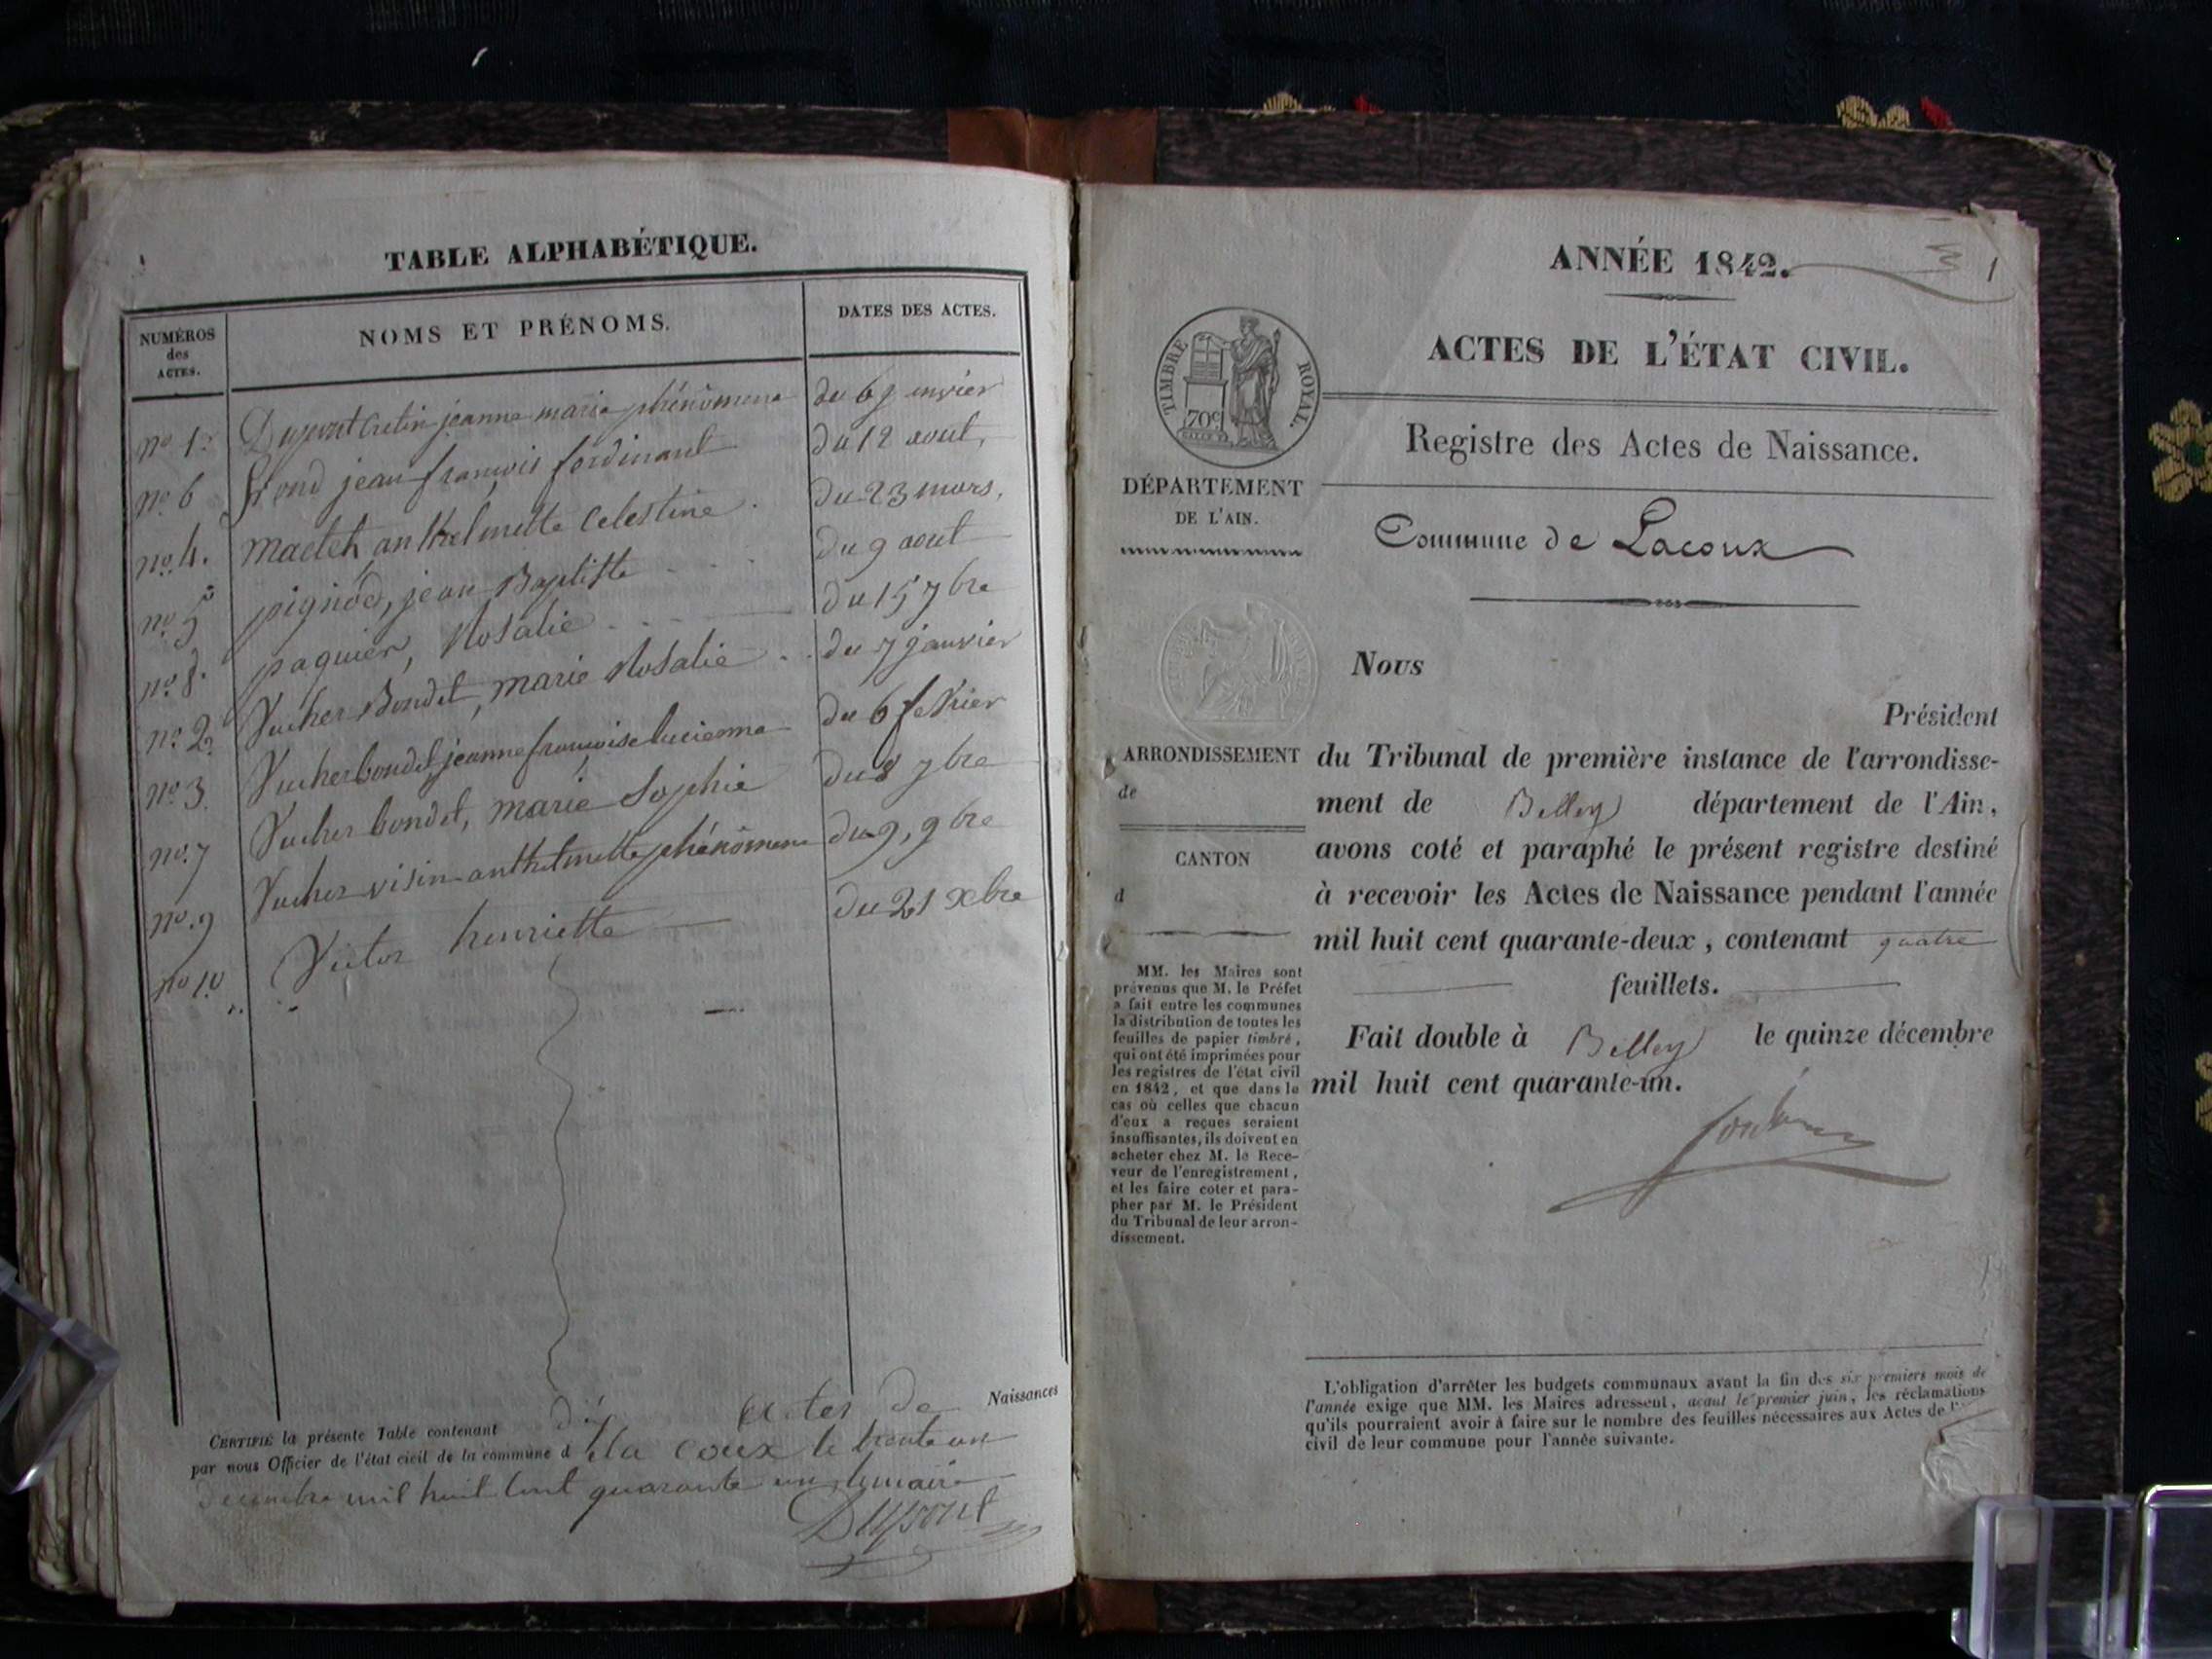 TABLE ALPHABÉTIQUE.
NUMÉROS des ACTES.
NOMS ET PRÉNOMS.
DATES DES ACTES.
no. 1. Dupont Cretin jeanne marie phénomene du 6 janvier
no. 6 frond jean françois ferdinant du 12 aout,
no. 4. machet, anthelmette Celestine. du 23 mars,
no. 5 pignod, jean Baptiste du 9 aout
no. 8. paquier, Rosalie du 15 7bre
no. 2. Vucher Bondet, marie Rosalie du 7 janvier
no. 3. Vucher bondet, jeanne françoise lucienne du 6 fevrier
no. 7 Vucher bondet, marie Sophie du 8 7bre
no. 9 Vucher visin anthelmette phénomene du 9, 9bre
no 10 Victor henriette du 21 xbre
CERTIFIÉ la présente Table contenant dix actes de Naissances
par nous Officier de l'état civil de la commune d la coux le trente un
decembre mil huit cent quarante un le maire
Dupont
ANNÉE 1842.
1
ACTES DE L'ÉTAT CIVIL.
TIMBRE ROYAL.
70c
Registre des Actes de Naissance.
DÉPARTEMENT
DE L'AIN.
Commune de Lacoux
Nous
Président
ARRONDISSEMENT
de
CANTON
d
du Tribunal de première instance de l'arrondisse-
ment de Belley département de l'Ain,
avons coté et paraphé le présent registre destiné
à recevoir les Actes de Naissance pendant l'année
mil huit cent quarante-deux, contenant quatre
feuillets.
Fait double à Belley le quinze décembre
mil huit cent quarante-un.
MM. les Maires sont
prévenus que M. le Préfet
a fait entre les communes
la distribution de toutes les
feuilles de papier timbré,
qui ont été imprimées pour
les registres de l'état civil
en 1842, et que dans le
cas où celles que chacun
d'eux a reçues seraient
insuffisantes, ils doivent en
acheter chez M. le Rece-
veur de l'enregistrement,
et les faire coter et para-
pher par M. le Président
du Tribunal de leur arron-
dissement.
L'obligation d'arrêter les budgets communaux avant la fin des six premiers mois de
l'année exige que MM. les Maires adressent, avant le premier juin, les réclamations
qu'ils pourraient avoir à faire sur le nombre des feuilles nécessaires aux Actes de l'
civil de leur commune pour l'année suivante.